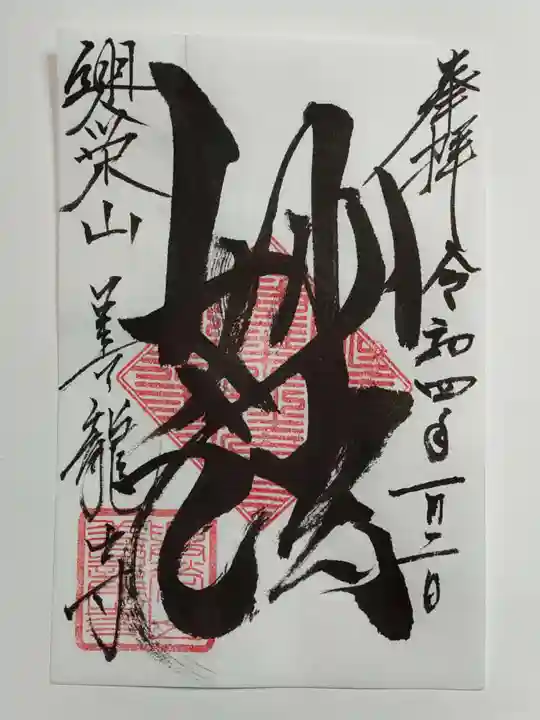 奉拝 令和四年一月二日
妙法
照栄山 善龍寺